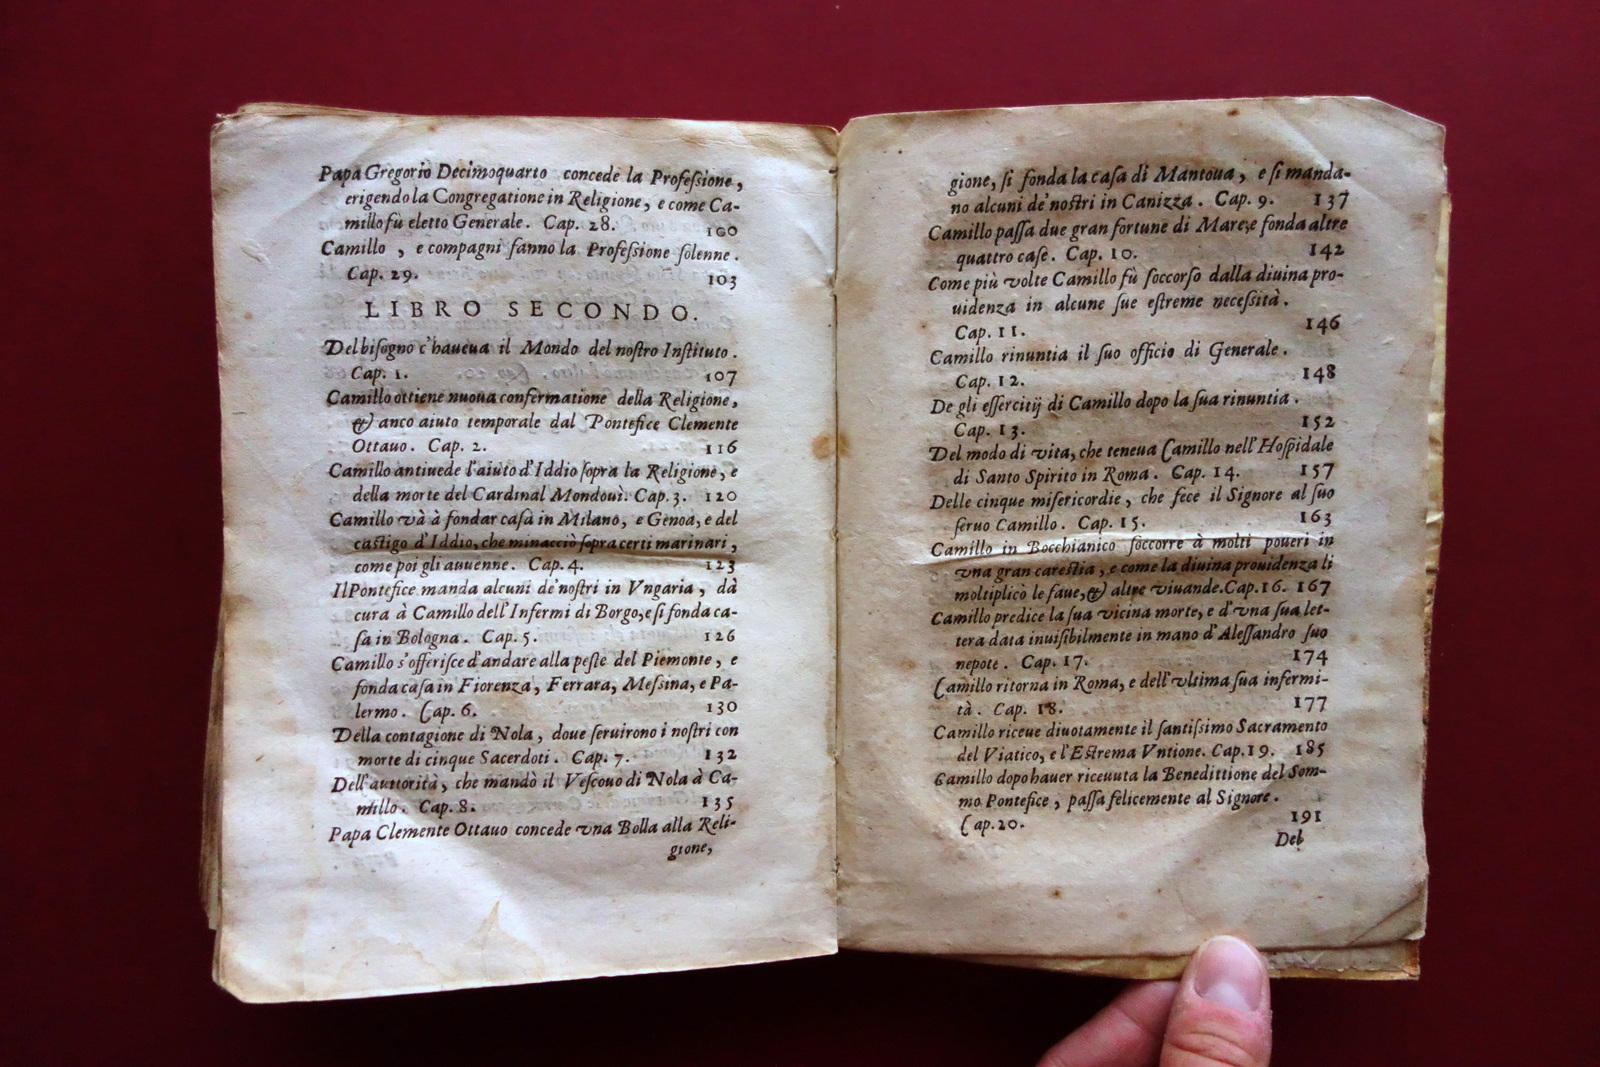 Papa Gregorio Decimoquarto concede la Profeſsione,
erigendo la Congregatione in Religione, e come Ca-
millo fù eletto Generale. Cap. 28. 100
Camillo, e compagni fanno la Profeſsione ſolenne.
Cap. 29. 103
LIBRO SECONDO.
Del biſogno c'haueua il Mondo del noſtro Inſtituto.
Cap. 1. 107
Camillo ottiene nuoua confermatione della Religione,
& anco aiuto temporale dal Pontefice Clemente
Ottauo. Cap. 2. 116
Camillo antiuede l'aiuto d'Iddio ſopra la Religione, e
della morte del Cardinal Mondouì. Cap. 3. 120
Camillo và à fondar caſa in Milano, e Genoa, e del
caſtigo d'Iddio, che minacciò ſopra certi marinari,
come poi gli auuenne. Cap. 4. 123
Il Pontefice manda alcuni de'noſtri in Vngaria, dà
cura à Camillo dell'Infermi di Borgo, e ſi fonda ca-
ſa in Bologna. Cap. 5. 126
Camillo s'offeriſce d'andare alla peſte del Piemonte, e
fonda caſa in Fiorenza, Ferrara, Meſsina, e Pa-
lermo. Cap. 6. 130
Della contagione di Nola, doue ſeruirono i noſtri con
morte di cinque Sacerdoti. Cap. 7. 132
Dell'auttorità, che mandò il Veſcouo di Nola à Ca-
millo. Cap. 8. 135
Papa Clemente Ottauo concede vna Bolla alla Reli-
gione,
gione, ſi fonda la caſa di Mantoua, e ſi manda-
no alcuni de'noſtri in Canizza. Cap. 9. 137
Camillo paſſa due gran fortune di Mare, e fonda altre
quattro caſe. Cap. 10. 142
Come più volte Camillo fù ſoccorſo dalla diuina pro-
uidenza in alcune ſue eſtreme neceſsità.
Cap. 11. 146
Camillo rinuntia il ſuo officio di Generale.
Cap. 12. 148
De gli eſſercitij di Camillo dopo la ſua rinuntia.
Cap. 13. 152
Del modo di vita, che teneua Camillo nell'Hoſpidale
di Santo Spirito in Roma. Cap. 14. 157
Delle cinque miſericordie, che fece il Signore al ſuo
ſeruo Camillo. Cap. 15. 163
Camillo in Bocchianico ſoccorre à molti poueri in
vna gran careſtia, e come la diuina prouidenza li
moltiplicò le faue, & altre viuande. Cap. 16. 167
Camillo predice la ſua vicina morte, e d'vna ſua let-
tera data inuiſibilmente in mano d'Aleſſandro ſuo
nepote. Cap. 17. 174
Camillo ritorna in Roma, e dell'vltima ſua infermi-
tà. Cap. 18. 177
Camillo riceue diuotamente il ſantiſsimo Sacramento
del Viatico, e l'Eſtrema Vntione. Cap. 19. 185
Camillo dopo hauer riceuuta la Benedittione del Som-
mo Pontefice, paſſa felicemente al Signore.
Cap. 20. 191
Del